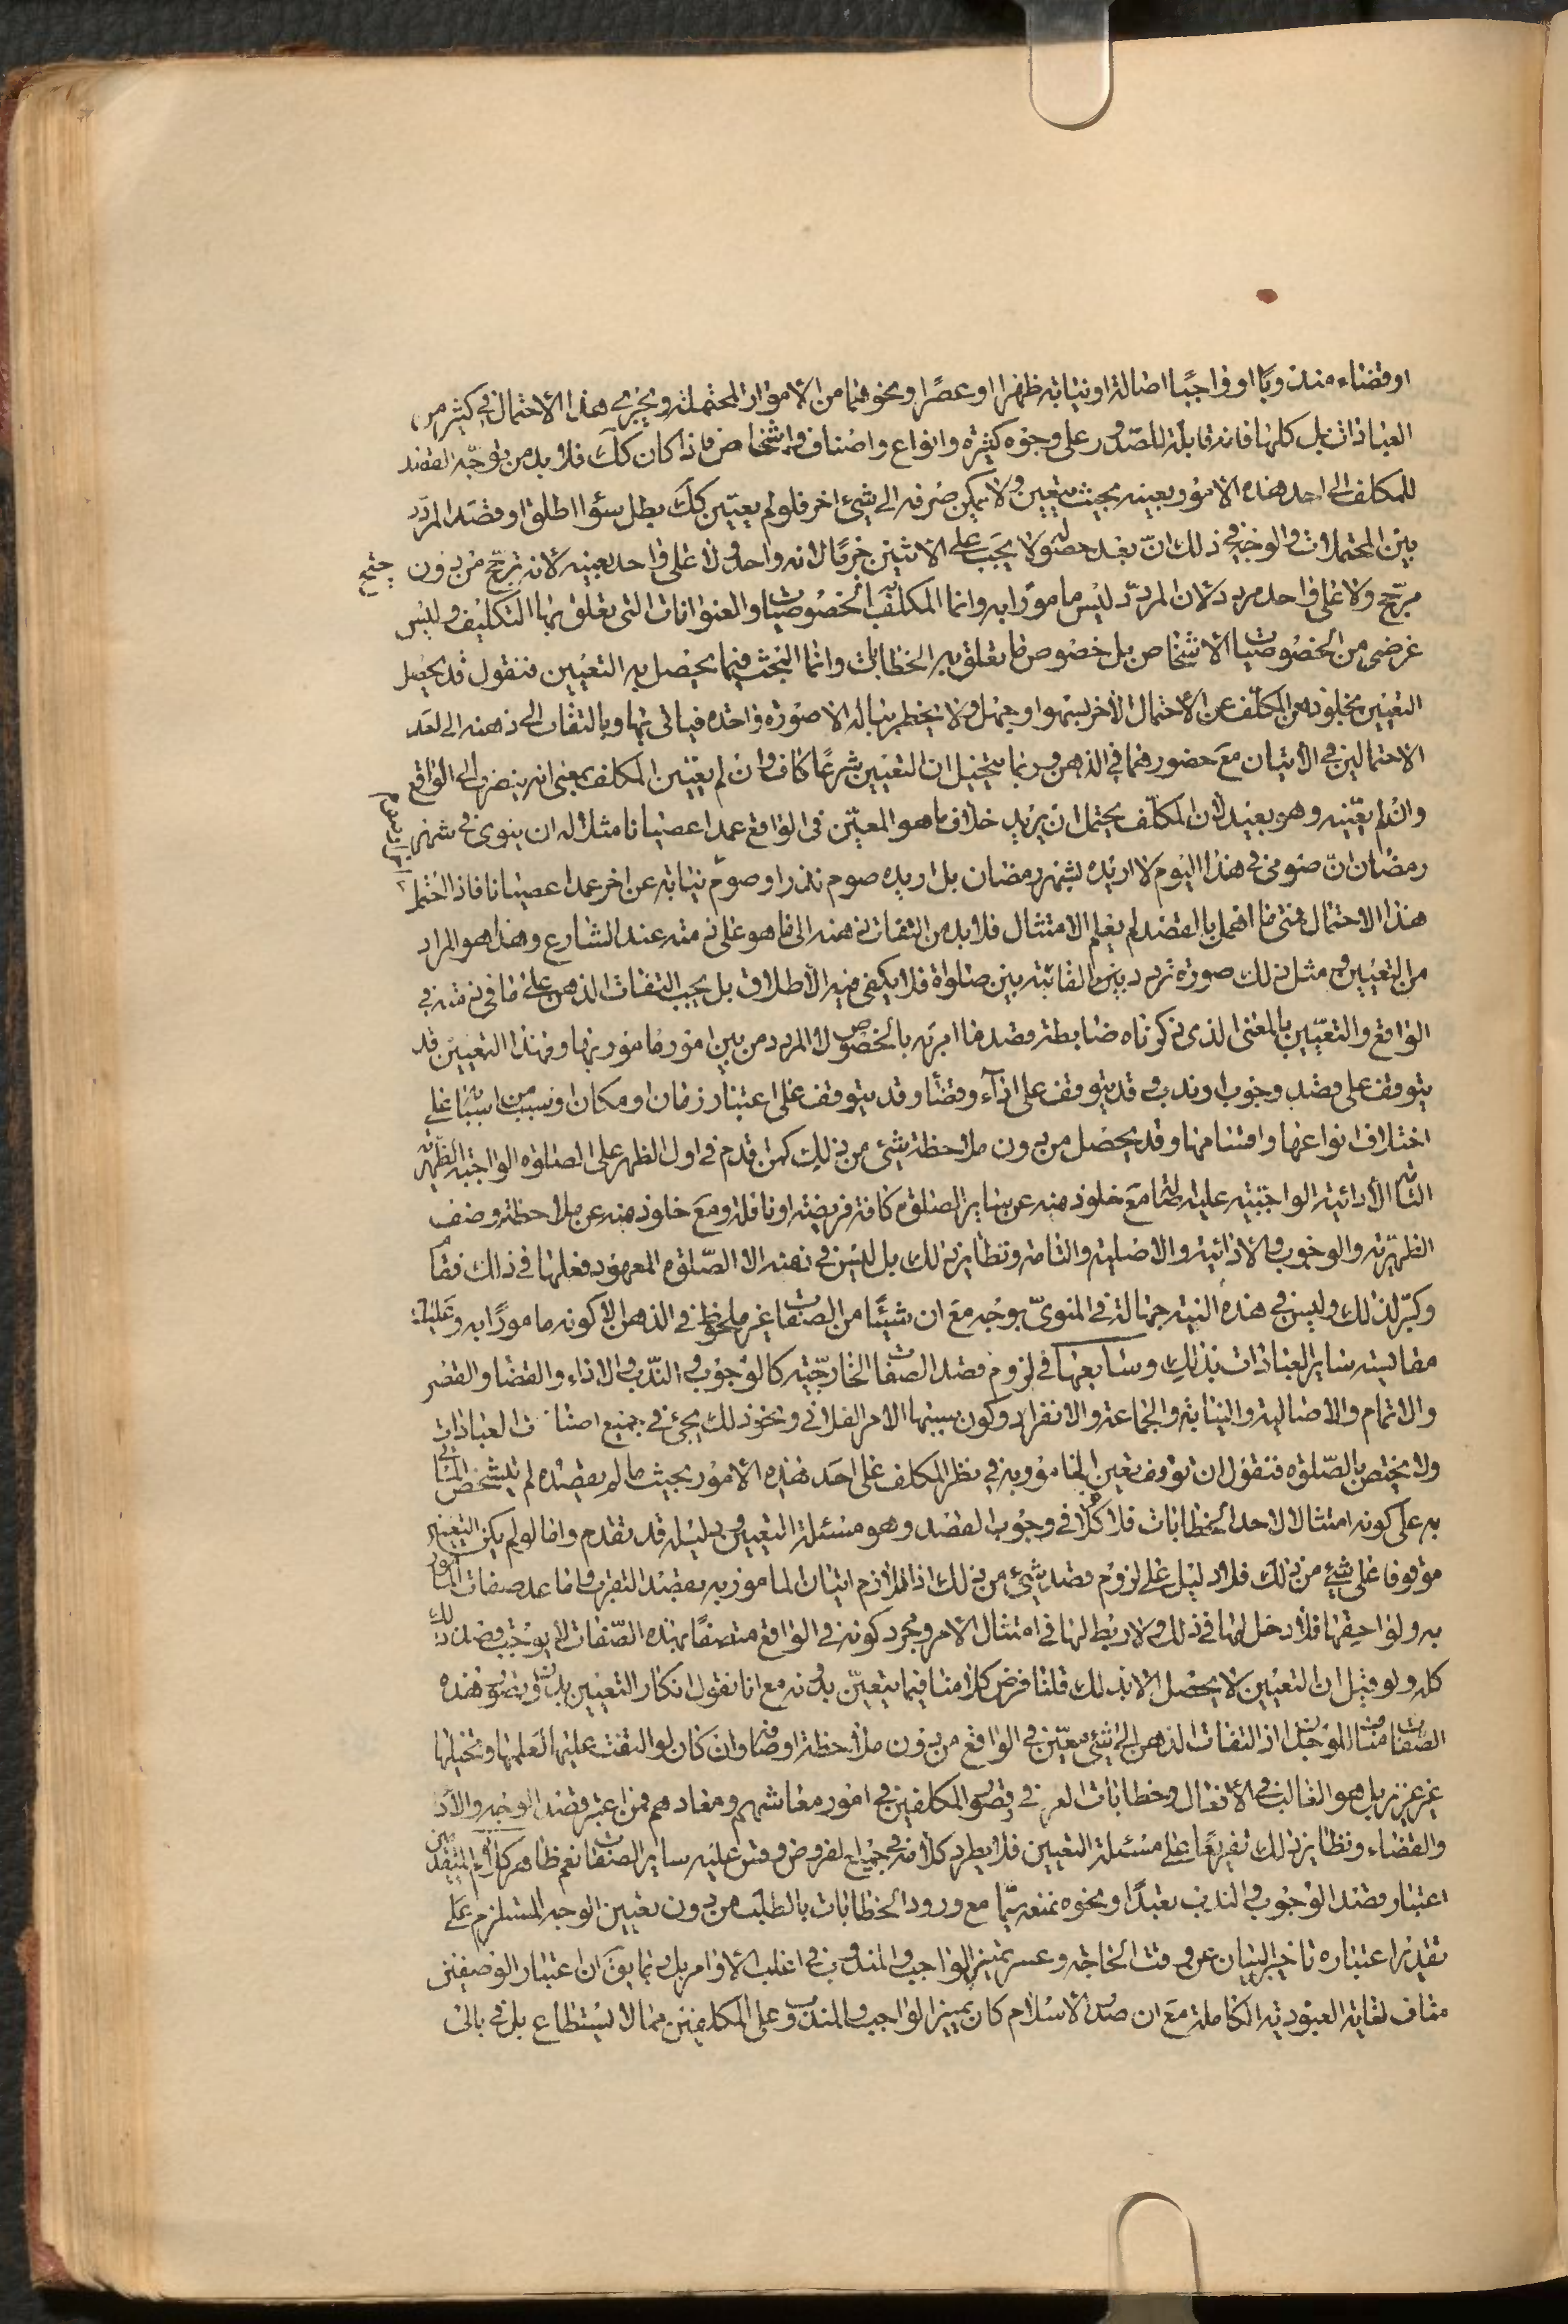 او قضاء مندوبًا او واجبًا اصالة او نيابة ظهرا او عصرًا ونحوهما من الامور المحتملة ويجرى هذا الاحتمال في كثير من
العبادات بل كلها فانه قابلة للصّدور على وجوه كثيرة وانواع واصناف واشخاص فاذا كان كك فلا بد من توجّه القصد
للمكلف الى احد هذه الامور بعينه بحيث يتعين ولا يمكن صرفه الى شيء اخر فلو لم يعيّن كك بطل سؤا اطلق او قصد المردّد
بين المحتملات والوجه في ذلك انّ بعد حصوله لا يجب على الاثنين جزمًا لانه واحد ولا على واحد بعينه لانه ترجّح من دون
مرجّح ولا على واحد مردد لان المردّد ليس مامورًا به وانما المكلف به الخصوصيات والعنوانات التى تعلق بها التكليف وليس
غرضى من الخصوصيات الاشخاص بل خصوص ما تعلق به الخطابات وانما البحث فيما يحصل به التعيين فنقول قد يحصل
التعيين بخلو ذهن المكلف عن الاحتمال الاخر بسهو او جهل ولا يخطر بباله الا صورة واحدة فياتى بها وبالتفات الى ذهنه الى احد
الاحتمالين في الاتيان مع حضورهما في الذهن وربما يتخيل ان التعيين شرعًا كاف وان لم يعيّن المكلف بمعنى انه ينصرف الى الواقع
وان لم يعيّنه وهو بعيد لان المكلّف يحتمل ان يريد خلاف ما هو المعيّن في الواقع عمدا عصيانا مثلا له ان ينوى في شهر
رمضان انّ صومى في هذا اليوم لا اريده لشهر رمضان بل اريده صوم نذر او صوم نيابة عن اخر عمدا عصيانا فاذا احتمل
هذا الاحتمال فمتى ما اهمل بالقصد لم يعلم الامتثال فلا بد من التفات ذهنه الى ما هو على ذمته عند الشارع وهذا هو المراد
من التعيين ومثل ذلك صورة تردد بين الفائتة بين صلوة فلا يكفى فيه الاطلاق بل يجب التفات الذهن على ما في ذمته في
الواقع والتعيّين بالمعنى الذى ذكرناه ضابطة قصد ما امر به بالخصوص لا المردد من بين امور مامور بها وهذا التعيين قد
يتوقف على قصد وجوب او ندب وقد يتوقف على اداء وقضاء وقد يتوقف على اعتبار زمان او مكان او سبب من اسبابها على
اختلاف انواعها واقسامها وقد يحصل من دون ملاحظة شيء من ذلك كمن قدم في اول الظهر على الصلوة الواجبة الظهرية
التامة الادائية الواجبة عليه مع خلو ذهنه عن ساير الصلوة كافة فريضة او نافلة ومع خلو ذهنه عن ملاحظة وصف
الظهرية والوجوب والادائية والاصلية والتامة ونظاير ذلك بل ليس في ذهنه الا الصّلوة المعهود فعلها في ذلك فقام
وكبّر لذلك وليس في هذه النية جهالة في المنوىّ بوجه مع ان شيئًا من الصفات غير ملحوظ في الذهن الا كونه مامورًا به وعليك
مقايسة ساير العبادات بذلك وسابعها في لزوم قصد الصفات الخارجّية كالوجوب والنّدب والاداء والقضا والقصر
والاتمام والاصالية والنيابة والجماعة والانفراد وكون سببها الامر الفلانى ونحو ذلك يجئ في جميع اصناف العبادات
ولا يختص بالصّلوة فنقول ان توقف تعين المامور به في نظر المكلف على احد هذه الامور بحيث ما لم يقصده لم يتشخص الماتى
به على كونه امتثالا لاحد الخطابات فلا كلام في وجوب القصد وهو مسئلة التعيين ودليله قد تقدم واما لو لم يكن التعيين
موقوفا على شيء من ذلك فلا دليل على لزوم قصد شيء من ذلك اذ اللازم اتيان المامور به بقصد التقرب واما عد صفات المامور
به ولواحقها فلا دخل لها في ذلك ولا ربط لها في امتثال الامر ومجرد كونه في الواقع متصفًا بهذه الصّفات لا يوجب قصد ذلك
كله ولو قيل ان التعيين لا يحصل الا بذلك قلنا فرض كلامنا فيما يتعيّن بدونه مع انا نقول انكار التعيين بدون تصور هذه
الصفات اذ التفات الذهن الى شيء معيّن في الواقع من دون ملاحظة اوصافه وان كان لو التفت عليها لعلمها وتخيلها
غير عزيز بل هو الغالب في الافعال وخطابات العرف وقصود المكلفين في امور معاشهم ومعادهم فمن اعتبر قصد الوجه والاداء
والقضاء ونظاير ذلك تفريعًا على مسئلة التعيين فلا يطرد كلامه في جميع الفروض وقس عليه ساير الصفات نعم ظاهر كلام المتقدمين
اعتبار قصد الوجوب والندب تعبدًا ونحوه نمنعه سيّما مع ورود الخطابات بالطلب من دون تعيين الوجه المستلزم على
تقدير اعتباره تاخير البيان عن وقت الحاجة وعسر تميز الواجب والمندوب في اغلب الاوامر بل ربما يق ان اعتبار الوصفين
مناف لغاية العبودية الكاملة مع ان صدر الاسلام كان تميز الواجب والمندوب على المكلفين مما لا يستطاع بل في بالى